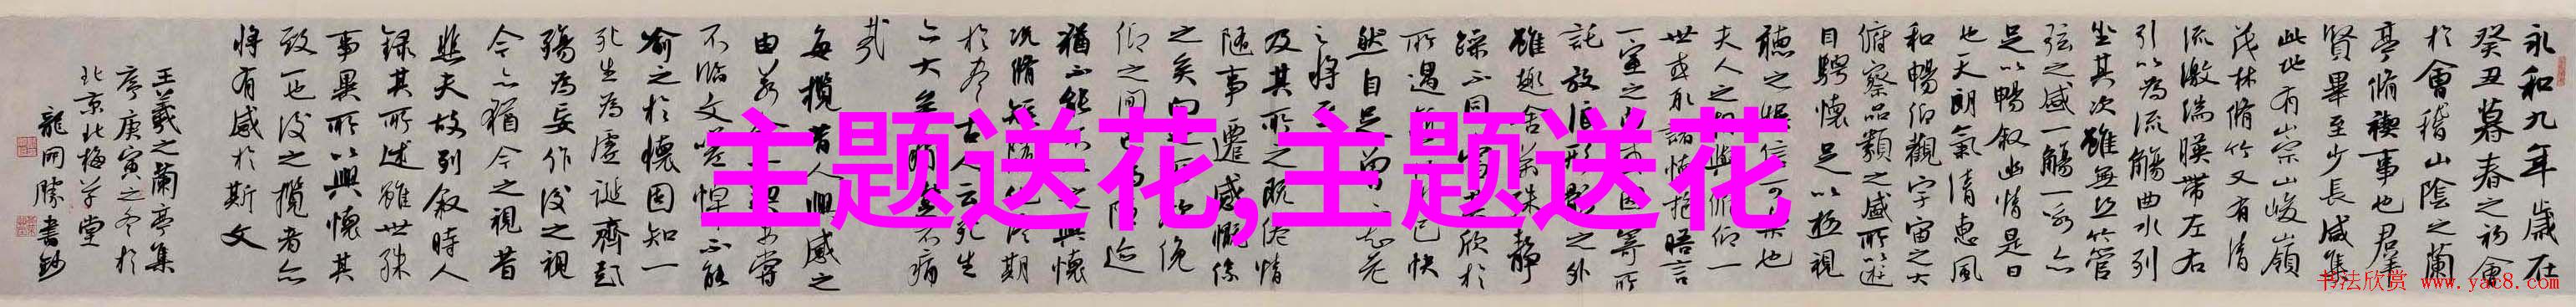 永和九年歲在
癸丑暮春之初會
於會稽山陰之蘭
亭脩禊事也群
賢畢至少長咸集
此地有崇山峻嶺
茂林脩竹又有清
流激湍暎帶左右
引以為流觴曲水列
坐其次雖無絲竹管
弦之盛一觴一詠亦
足以暢敘幽情是日
也天朗氣清惠風
和暢仰觀宇宙之大
俯察品類之盛所以遊
目騁懷足以極視
聽之娛信可樂也
夫人之相與俯仰一
世或取諸懷抱晤言
一室之內或因寄所
託放浪形骸之外
雖趣舍萬殊靜
躁不同當其欣於
所遇己快
然自足曾老
之將至
及其所之既倦情
隨事遷感慨係
之矣向之所欣俛
仰之間已為陳迹
猶不能不以之興懷
況脩短隨化終期
於盡古人云死生
亦大矣豈不痛
哉
每攬昔人興感之
由若合一契未嘗
不臨文嗟悼不能
喻之於懷固知一
死生為虛誕齊彭
殤為妄作後之視
今亦猶今之視昔
悲夫故列敘時人
錄其所述雖世殊
事異所以興懷其
致一也後之攬者亦
將有感於斯文
王羲之蘭亭集
序庚寅之冬於
北京北梅草堂
龍開勝書鈔
主题送花,主题送花
书法欣赏 www.yac8.com